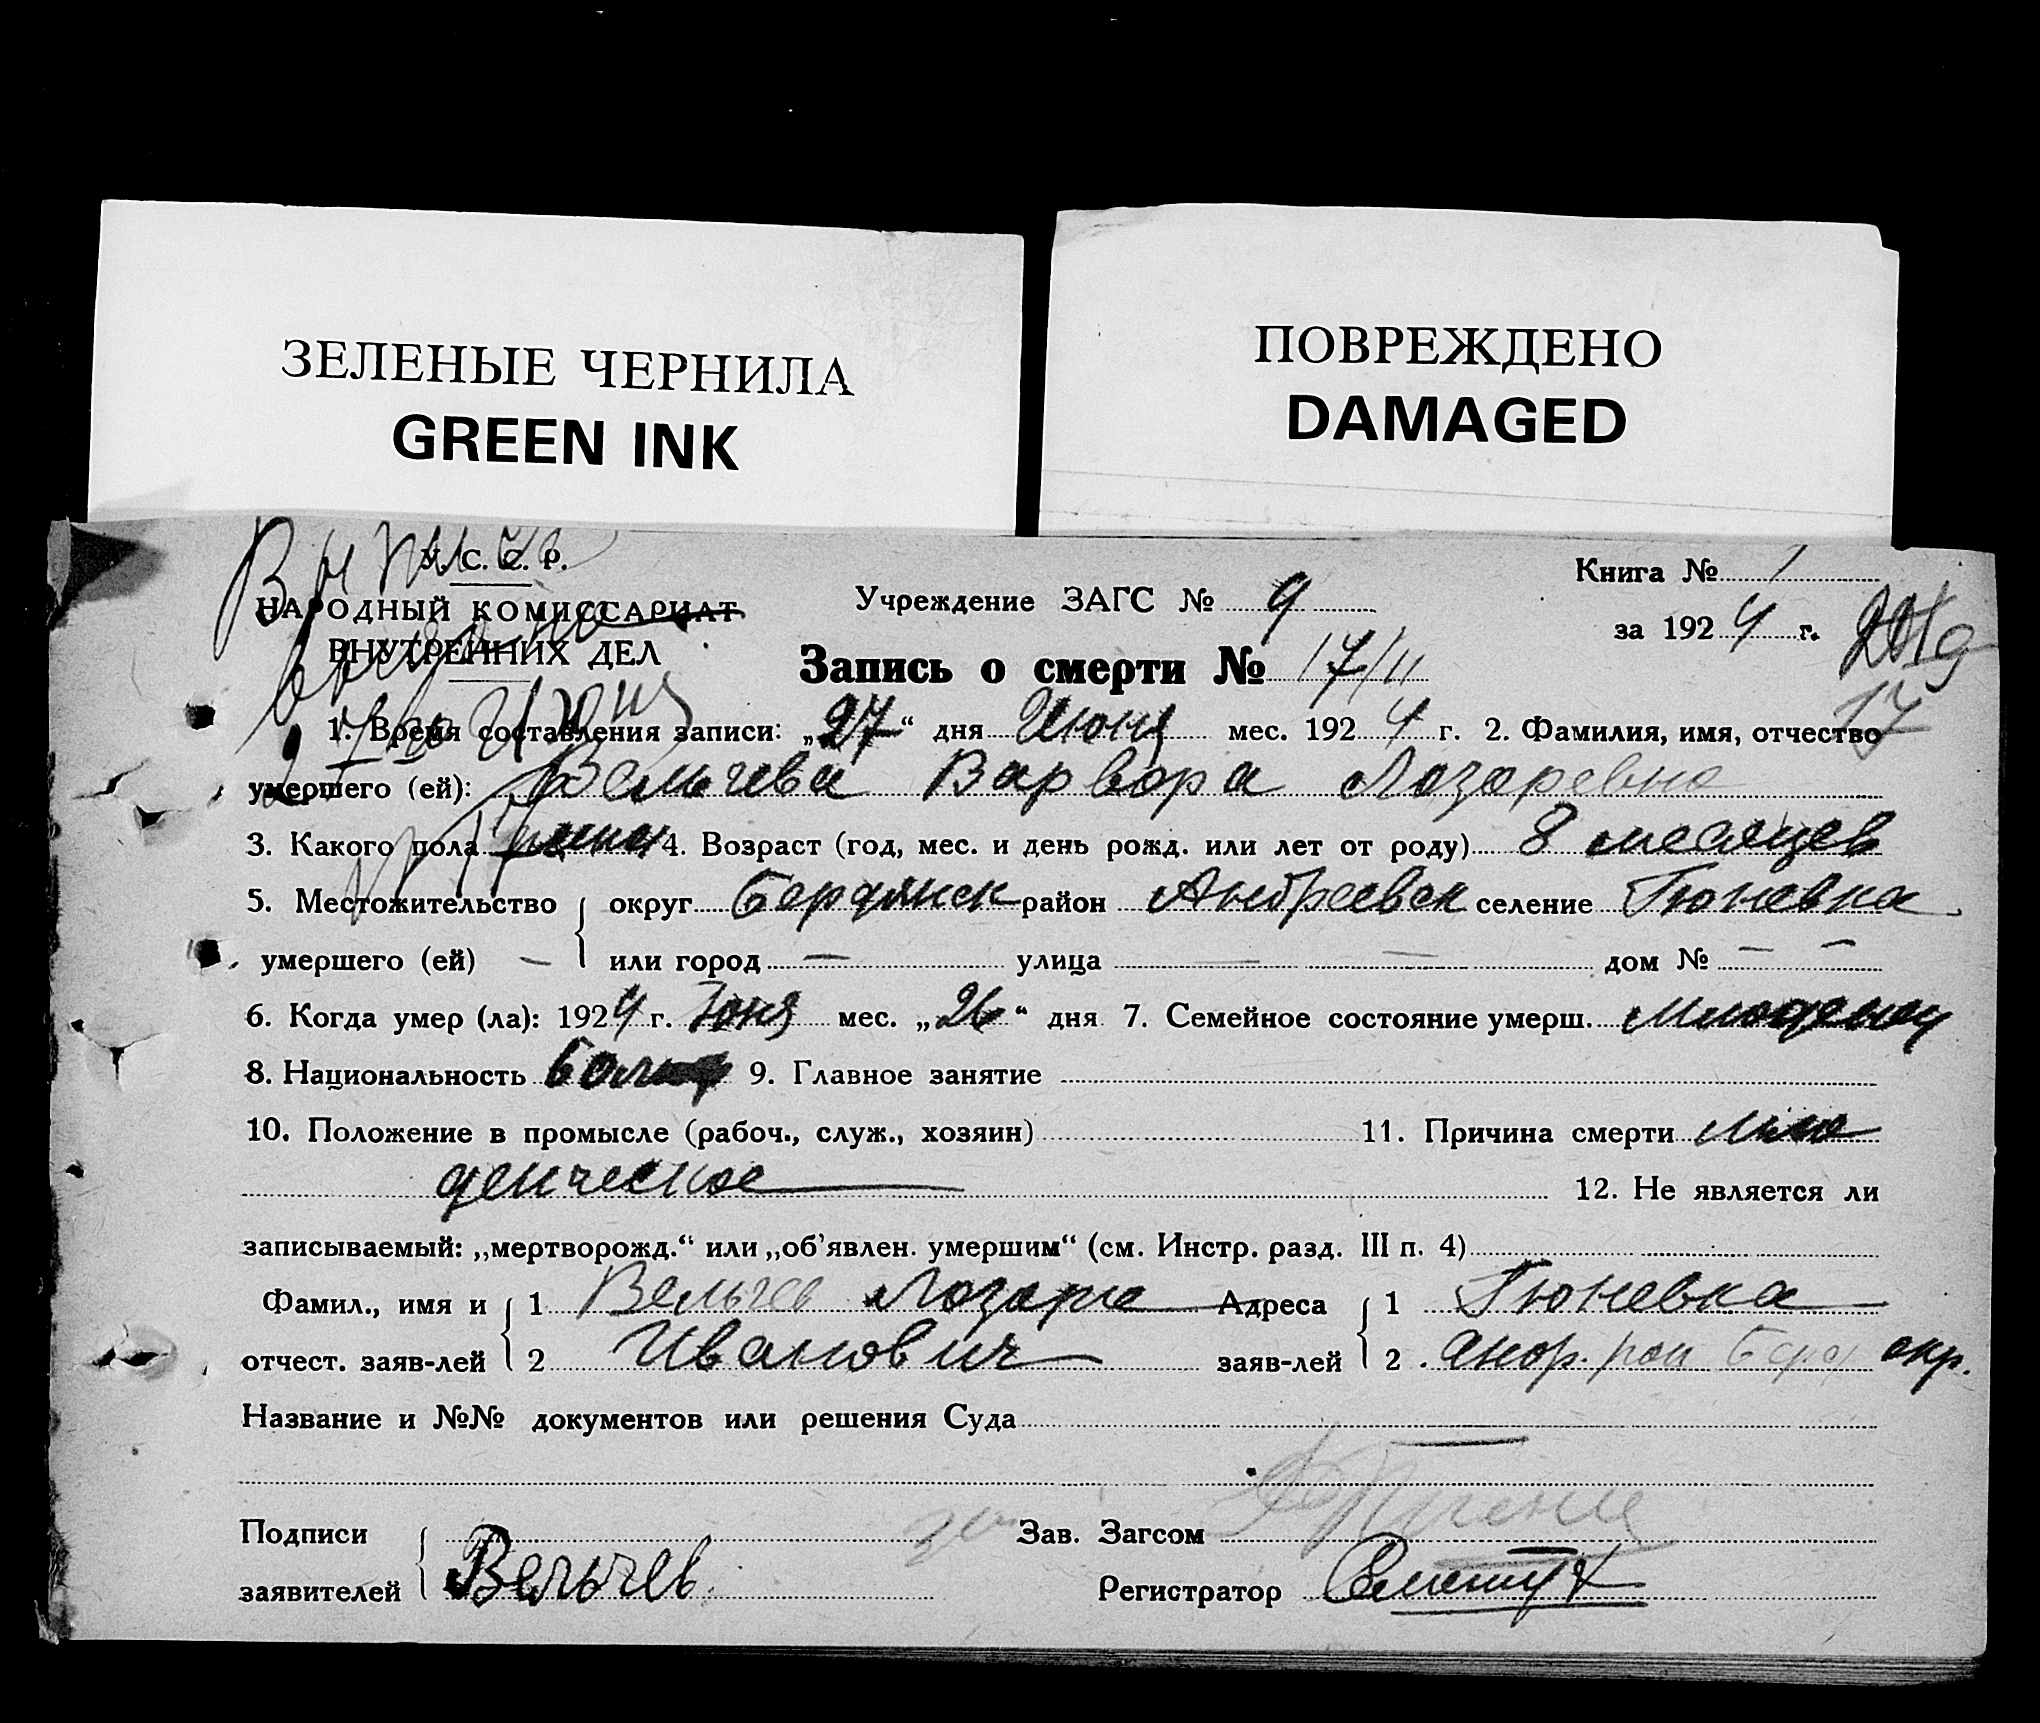 ЗЕЛЕНЫЕ ЧЕРНИЛА
GREEN INK
ПОВРЕЖДЕНО
DAMAGED
У. С. С. Р.
НАРОДНЫЙ КОМИССАРИАТ
ВНУТРЕННИХ ДЕЛ
Выпись
выдана
27/VI Июня
Учреждение ЗАГС № 9
Книга № 1
за 1924 г.
Запись о смерти № 17/11
17
1. Время составления записи: „27“ дня Июня мес. 1924 г. 2. Фамилия, имя, отчество
умершего (ей): Вельчева Варвора Лозаревна
3. Какого пола женск 4. Возраст (год, мес. и день рожд. или лет от роду) 8 месяцев
5. Местожительство округ Бердянск район Андреевск селение Гюневка
умершего (ей) — или город — улица — — дом № — —
6. Когда умер (ла): 1924 г. Юня мес. „26“ дня 7. Семейное состояние умерш. Младенец
8. Национальность 9. Главное занятие
10. Положение в промысле (рабоч., служ., хозяин) 11. Причина смерти мла
денческое
12. Не является ли
записываемый: „мертворожд.“ или „об’явлен. умершим“ (см. Инстр. разд. III п. 4)
Фамил., имя и 1 Вельчев Лозарь Адреса 1 Гюневка
отчест. заяв-лей 2 Иванович заяв-лей 2 Андр. рай Берд окр.
Название и №№ документов или решения Суда
Подписи Зав. Загсом
заявителей Вельчев. Регистратор